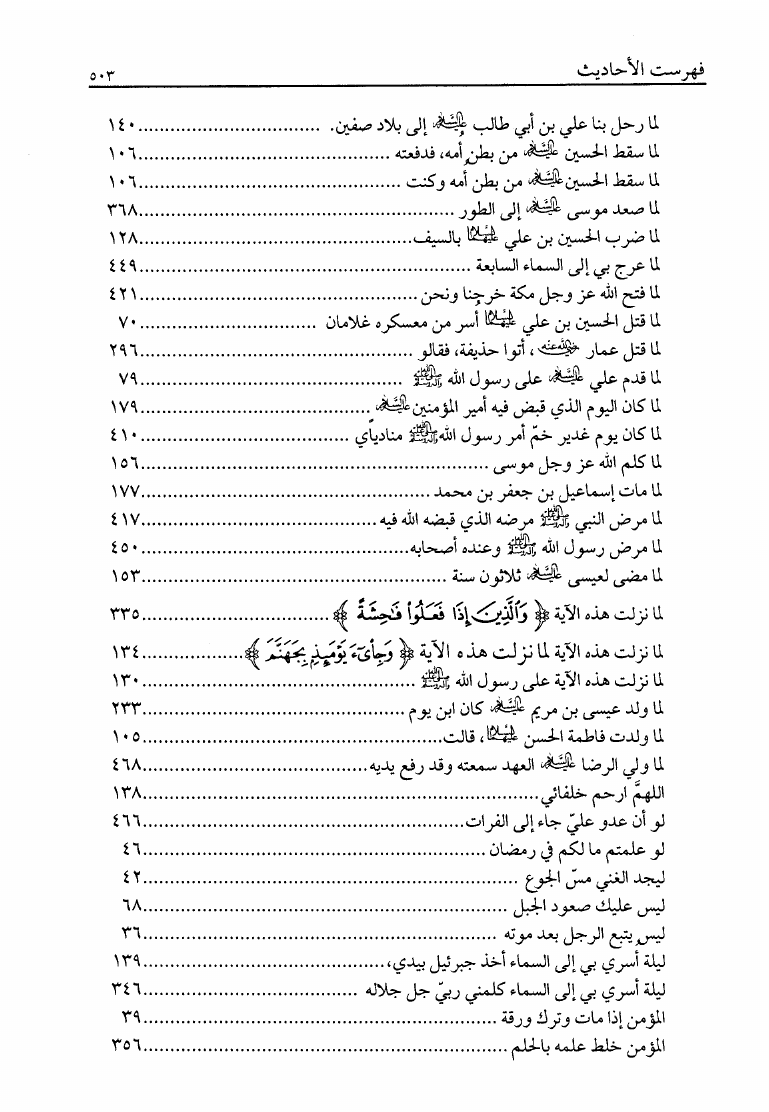 فهرست الأحاديث ٥٠٣
لما رحل بنا علي بن أبي طالب عليه السلام إلى بلاد صفين. ................................ ١٤٠
لما سقط الحسين عليه السلام من بطن أمه، فدفعته ................................ ١٠٦
لما سقط الحسين عليه السلام من بطن أمه وكنت ................................ ١٠٦
لما صعد موسى عليه السلام إلى الطور ................................ ٣٦٨
لما ضرب الحسين بن علي عليهما السلام بالسيف ................................ ١٢٨
لما عرج بي إلى السماء السابعة ................................ ٤٤٩
لما فتح الله عز وجل مكة خرجنا ونحن ................................ ٤٢١
لما قتل الحسين بن علي عليهما السلام أسر من معسكره غلامان ................................ ٧٠
لما قتل عمار رضي الله عنه، أتوا حذيفة، فقالو ................................ ٢٩٦
لما قدم علي عليه السلام على رسول الله ﷺ ................................ ٧٩
لما كان اليوم الذي قبض فيه أمير المؤمنين عليه السلام ................................ ١٧٩
لما كان يوم غدير خمّ أمر رسول الله ﷺ منادياً ................................ ٤١٠
لما كلم الله عز وجل موسى ................................ ١٥٦
لما مات إسماعيل بن جعفر بن محمد ................................ ١٧٧
لما مرض النبي ﷺ مرضه الذي قبضه الله فيه ................................ ٤١٧
لما مرض رسول الله ﷺ وعنده أصحابه ................................ ٤٥٠
لما مضى لعيسى عليه السلام ثلاثون سنة ................................ ١٥٣
لما نزلت هذه الآية ﴿ وَالَّذِينَ إِذَا فَعَلُوا فَاحِشَةً ﴾ ................................ ٣٣٥
لما نزلت هذه الآية لما نزلت هذه الآية ﴿ وَجِاْىٓءَ يَوْمَئِذٍ بِجَهَنَّمَ ﴾ ................................ ١٣٤
لما نزلت هذه الآية على رسول الله ﷺ ................................ ١٣٠
لما ولد عيسى بن مريم عليه السلام كان ابن يوم ................................ ٢٣٣
لما ولدت فاطمة الحسن عليهما السلام، قالت ................................ ١٠٥
لما ولي الرضا عليه السلام العهد سمعته وقد رفع يديه ................................ ٤٦٨
اللهمَّ ارحم خلفائي ................................ ١٣٨
لو أن عدو عليّ جاء إلى الفرات ................................ ٤٦٦
لو علمتم ما لكم في رمضان ................................ ٤٦
ليجد الغني مسّ الجوع ................................ ٤٢
ليس عليك صعود الجبل ................................ ٦٨
ليس يتبع الرجل بعد موته ................................ ٣٦
ليلة أسري بي إلى السماء أخذ جبرئيل بيدي، ................................ ١٣٩
ليلة أسري بي إلى السماء كلمني ربيّ جل جلاله ................................ ٣٤٦
المؤمن إذا مات وترك ورقة ................................ ٣٩
المؤمن خلط علمه بالحلم ................................ ٣٥٦